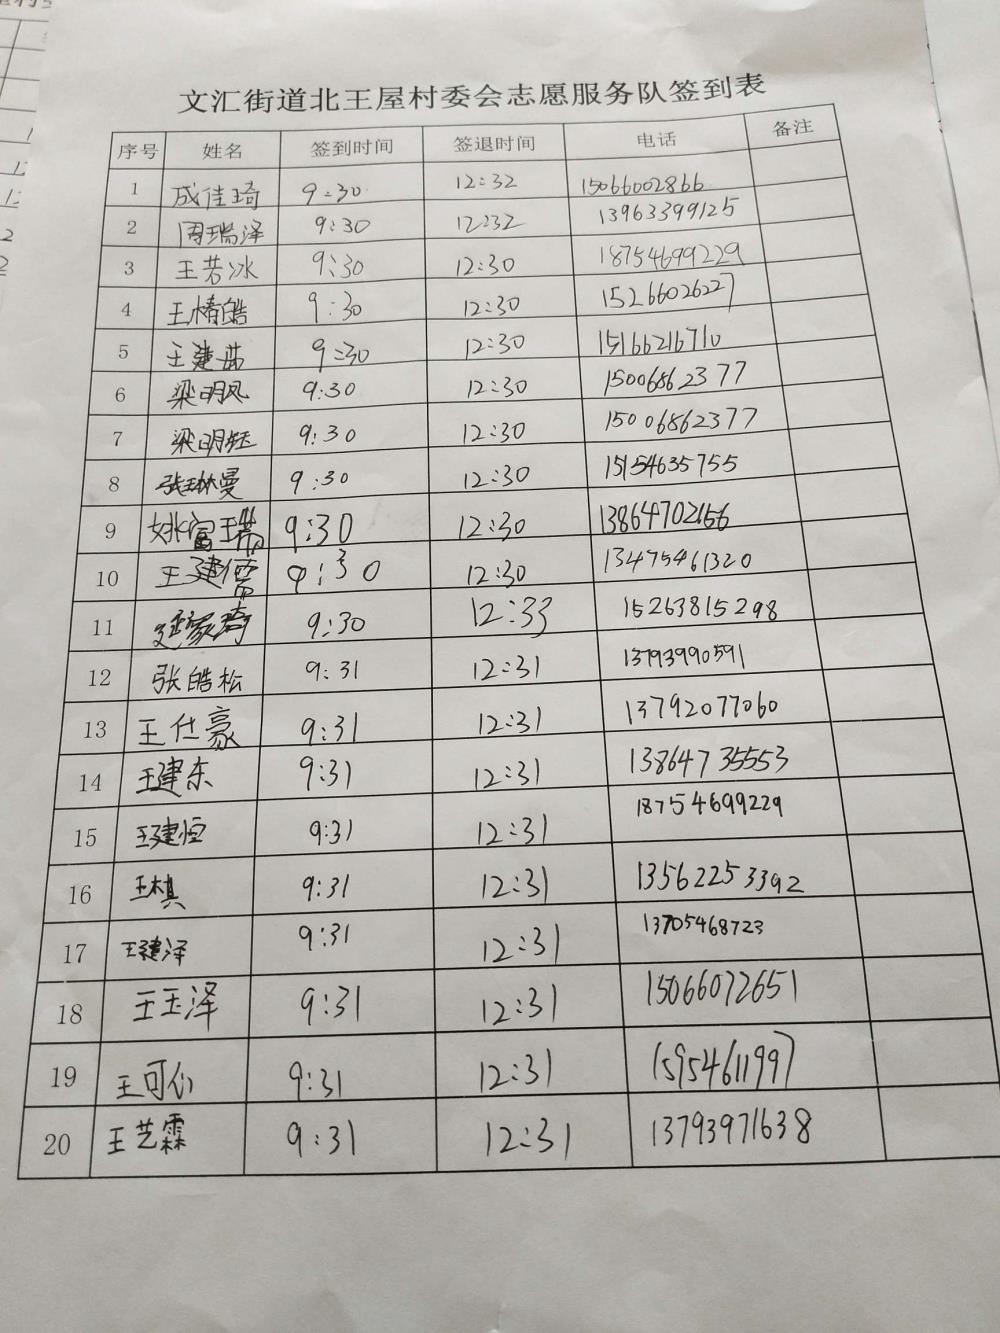 文汇街道北王屋村委会志愿服务队签到表
序号 姓名 签到时间 签退时间 电话 备注
1 成佳琦 9:30 12:32 15066002866
2 周瑞泽 9:30 12:32 13963399125
3 王若冰 9:30 12:30 18754699229
4 王椿皓 9:30 12:30 15266026227
5 王建茹 9:30 12:30 15166216710
6 梁明凤 9:30 12:30 15006862377
7 梁明钰 9:30 12:30 15006862377
8 张琳曼 9:30 12:30 15154635755
9 姚富瑞 9:30 12:30 13864702156
10 王建儒 9:30 12:30 13475461320
11 9:30 12:33 15263815298
12 张皓松 9:31 12:31 13793990591
13 王仕豪 9:31 12:31 13792077060
14 王建东 9:31 12:31 13864735553
15 王建恒 9:31 12:31 18754699229
16 王棋 9:31 12:31 13562253392
17 王建泽 9:31 12:31 13705468723
18 王玉泽 9:31 12:31 15066072651
19 王可心 9:31 12:31 15954611997
20 王艺霖 9:31 12:31 13793971638